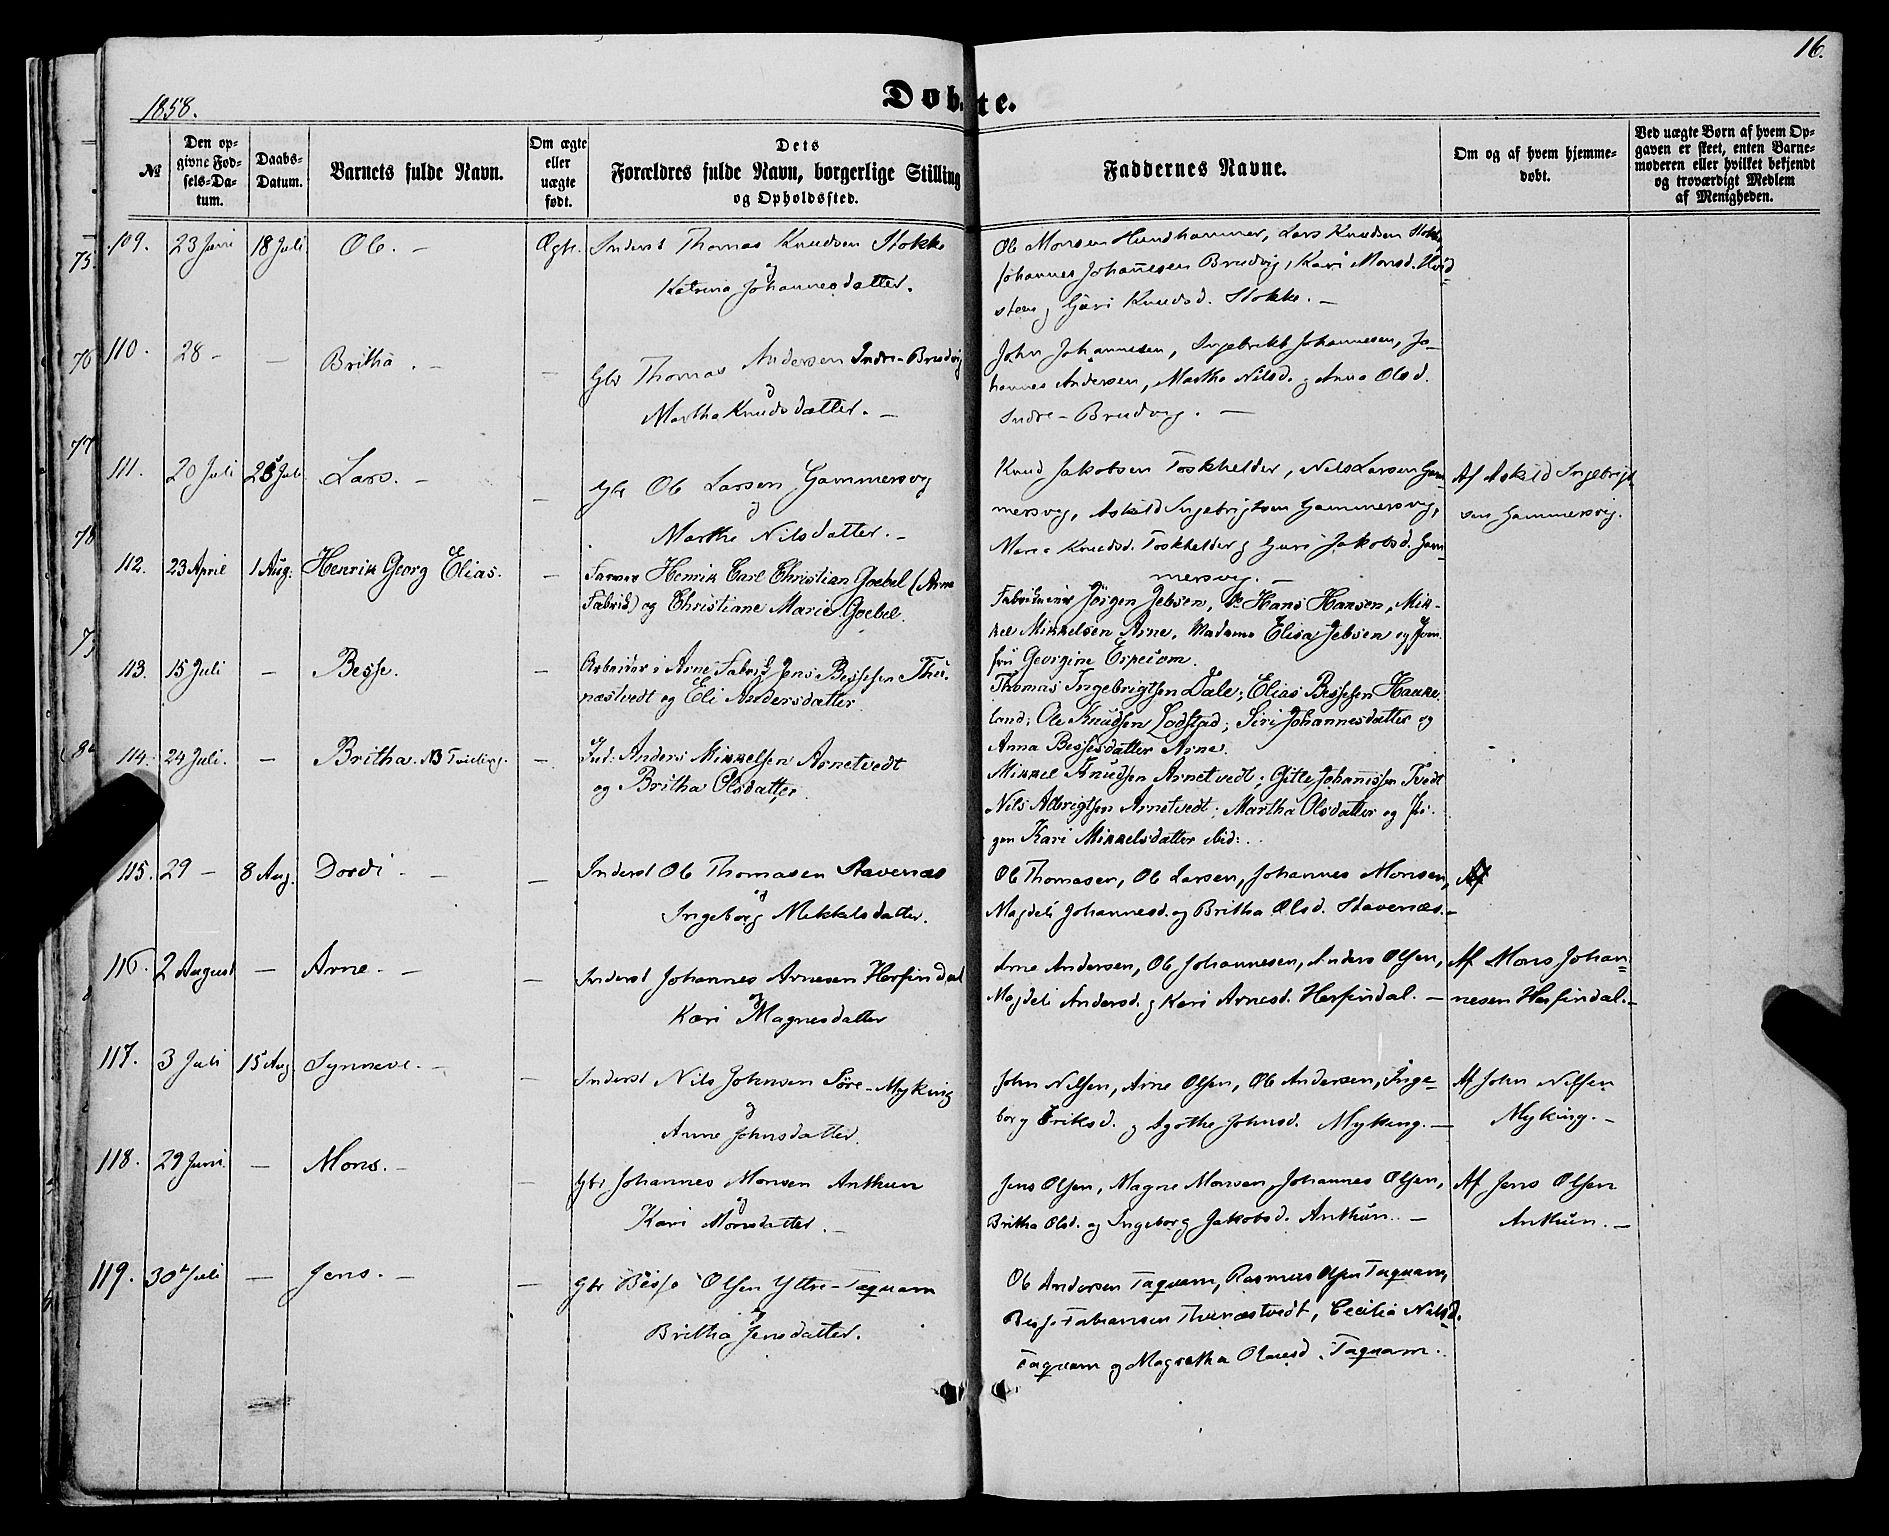 16.
1858.
Døbte.
№
Den opgivne Fødsels-Datum.
Daabs-Datum.
Barnets fulde Navn.
Om ægte eller uægte født.
Dets Forældres fulde Navn, borgerlige Stilling og Opholdssted.
Faddernes Navne.
Om og af hvem hjemmedøbt.
Ved uægte Børn af hvem Opgaven er skeet, enten Barnemoderen eller hvilket bekjendt og troværdigt Medlem af Menigheden.
109. 23 Juni 18 Juli Ole. – Ægte. Inderst Thomas Knudsen Stokke
og
Katrina Johannesdatter.
Ole Monsen Hundhammer, Lars Knudsen Stokke,
Johannes Johannesen Brudvig, Kari Monsd. Hvid=
steen og Guri Knudsd. Stokke. –
110. 28 – – Britha. – – Gbr Thomas Andersen Indre-Brudvig
og
Martha Knudsdatter. –
John Johannesen, Ingebrikt Johannesen, Jo-
hannes Andersen, Martha Nilsd. og Anna Olsd.
Indre-Brudvig. –
111. 20 Juli 25 Juli Lars. – – Gbr Ole Larsen Gammersvig
og
Marthe Nilsdatter. –
Knud Jakobsen Toskhelder, Nils Larsen Gam-
mersvig, Askild Ingebrigtsen Gammersvig,
Mari Knudsd. Toskhelder og Guri Jakobsd. Gam-
mersvig. –
Af Askild Ingebrigt-
sen Gammersvig.
112. 23 April 1 Aug: Henrik Georg Elias. – Farver Henrik Carl Christian Goebel (Arne
Fabrik) og Christiane Marie Goebel.
Fabrikeier Jörgen Jebsen, Do Hans Hansen, Mik-
kel Mikkelsen Arne, Madame Elisa Jebsen og Jom-
fru Georgine
113. 15 Juli – Besse. – Arbeider i Arne Fabrik Jens Bessesen Thu-
næstvedt og Eli Andersdatter.
Thomas Ingebrigtsen Dale; Elias Bessesen Hauke-
land; Ole Knudsen Lodstad; Siri Johannesdatter og
Anna Bessesdatter Arne.
114. 24 Juli. – Britha. NB Tvilling. – Ind: Anders Mikkelsen Arnetvedt
og Britha Olsdatter.
Mikkel Knudsen Arnetvedt; Gitle Johannessen Tvedt
Nils Albrigtsen Arnetvedt; Martha Olsdatter og Pi-
gen Kari Mikkelsdatter ibid:.
115. 29 – 8 Aug. Dordi. – – Inderst Ole Thomasen Stavenæs
og
Ingeborg Mikkelsdatter.
Ole Thomasen, Ole Larsen, Johannes Monsen,
Magdeli Johannesd. og Britha Olsd. Stavenæs. –
Af
116. 2 August – Arne. – – Inderst Johannes Arnesen Herfindal
og
Kari Magnesdatter
Arne Andersen, Ole Johannesen, Anders Olsen,
Magdeli Andersd. og Kari Arnesd. Herfindal. –
Af Mons Johan=
nesen Herfindal. –
117. 3 Juli 15 Aug Synneve. – – Inderst Nils Johnsen Søre-Myking
og
Anne Johnsdatter.
John Nilsen, Arne Olsen, Ole Andersen, Inge=
borg Eriksd. og Agothe Johnsd. Myking. –
Af John Nilsen
Myking. –
118. 29 Juni – Mons. – – Gbr Johannes Monsen Anthun
og
Kari Monsdatter. –
Jens Olsen, Magne Monsen, Johannes Olsen,
Britha Olsd. og Ingeborg Jakobsd. Anthun. –
Af Jens Olsen
Anthun. –
119. 30 Juli – Jens. – – Gbr Besse Olsen Ytre-Taquam
og
Britha Jensdatter.
Ole Andersen Taquam, Rasmus Olsen Taquam,
Besse Fabiansen Thunæstvedt, Cecilia Nilsd.
Taquam og Magretha Olavesd. Taquam.
75.
76
77
78